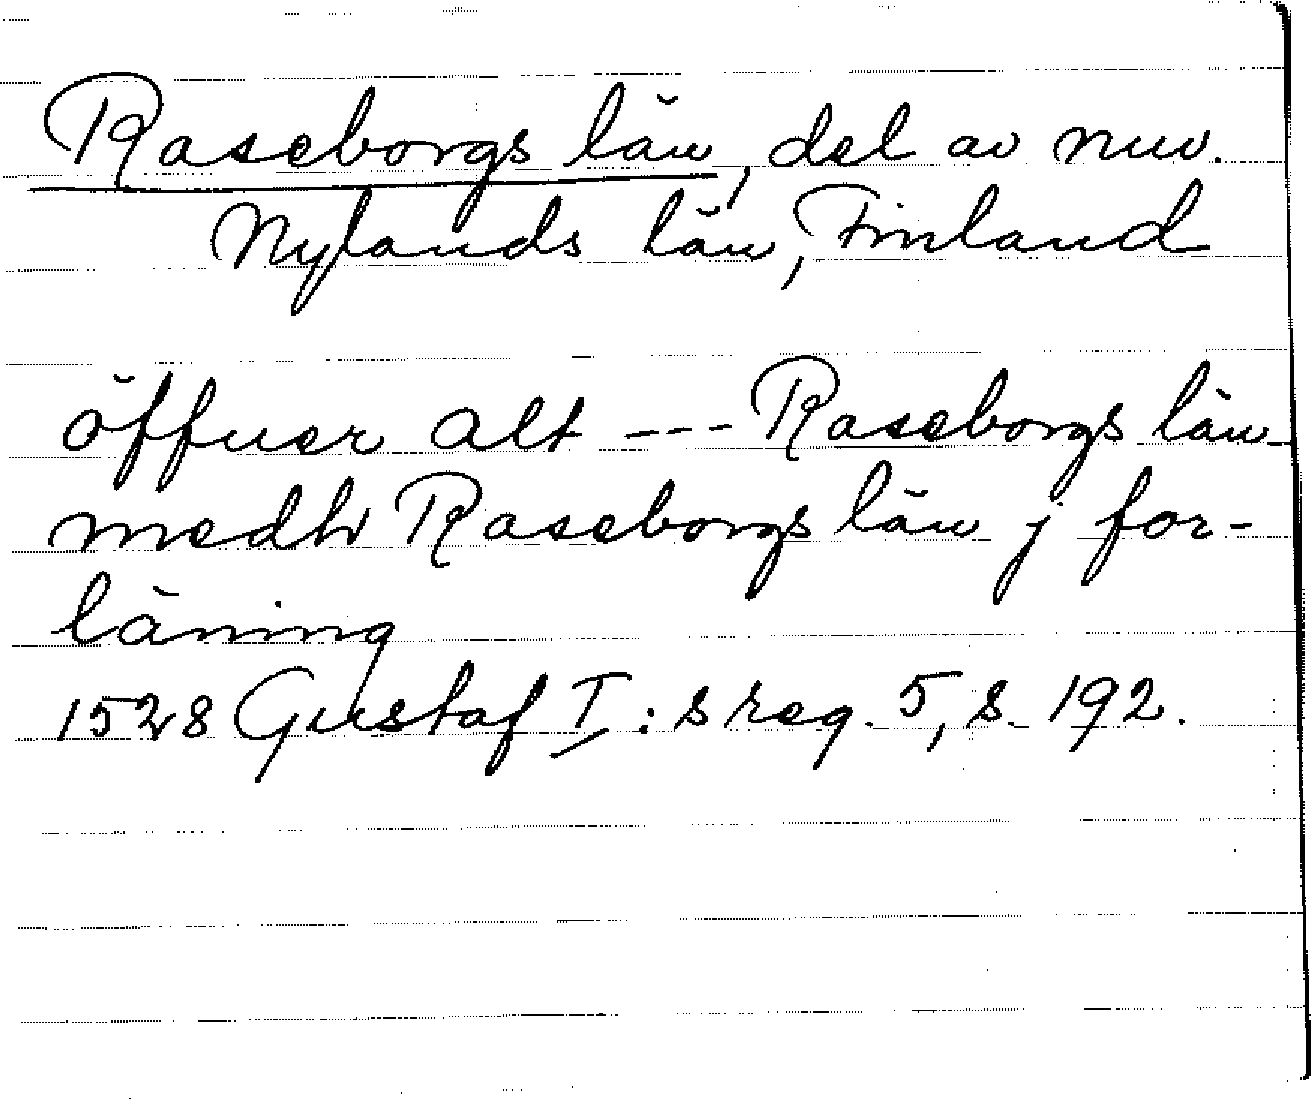 Raseborgs län, del av nuv.
Nylands län, Finland
öffuer alt --- Raseborgs län
medh Raseborgs län j for-
läning
1528 Gustaf I:s reg. 5, s. 192.